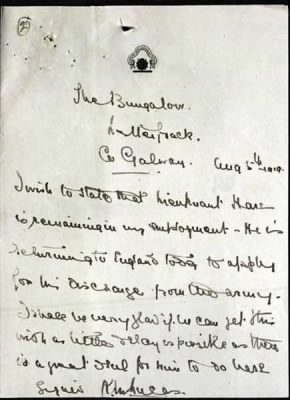 The Bungalow.
Letterfrack.
Co Galway. Aug 5th 1919.
I wish to state that Lieutenant
is remaining in my employment - He is
returning to England today to apply
for his discharge from the army.
I shall be very glad if he can get this
with as little delay as possible as there
is a great deal for him to do here
Signed